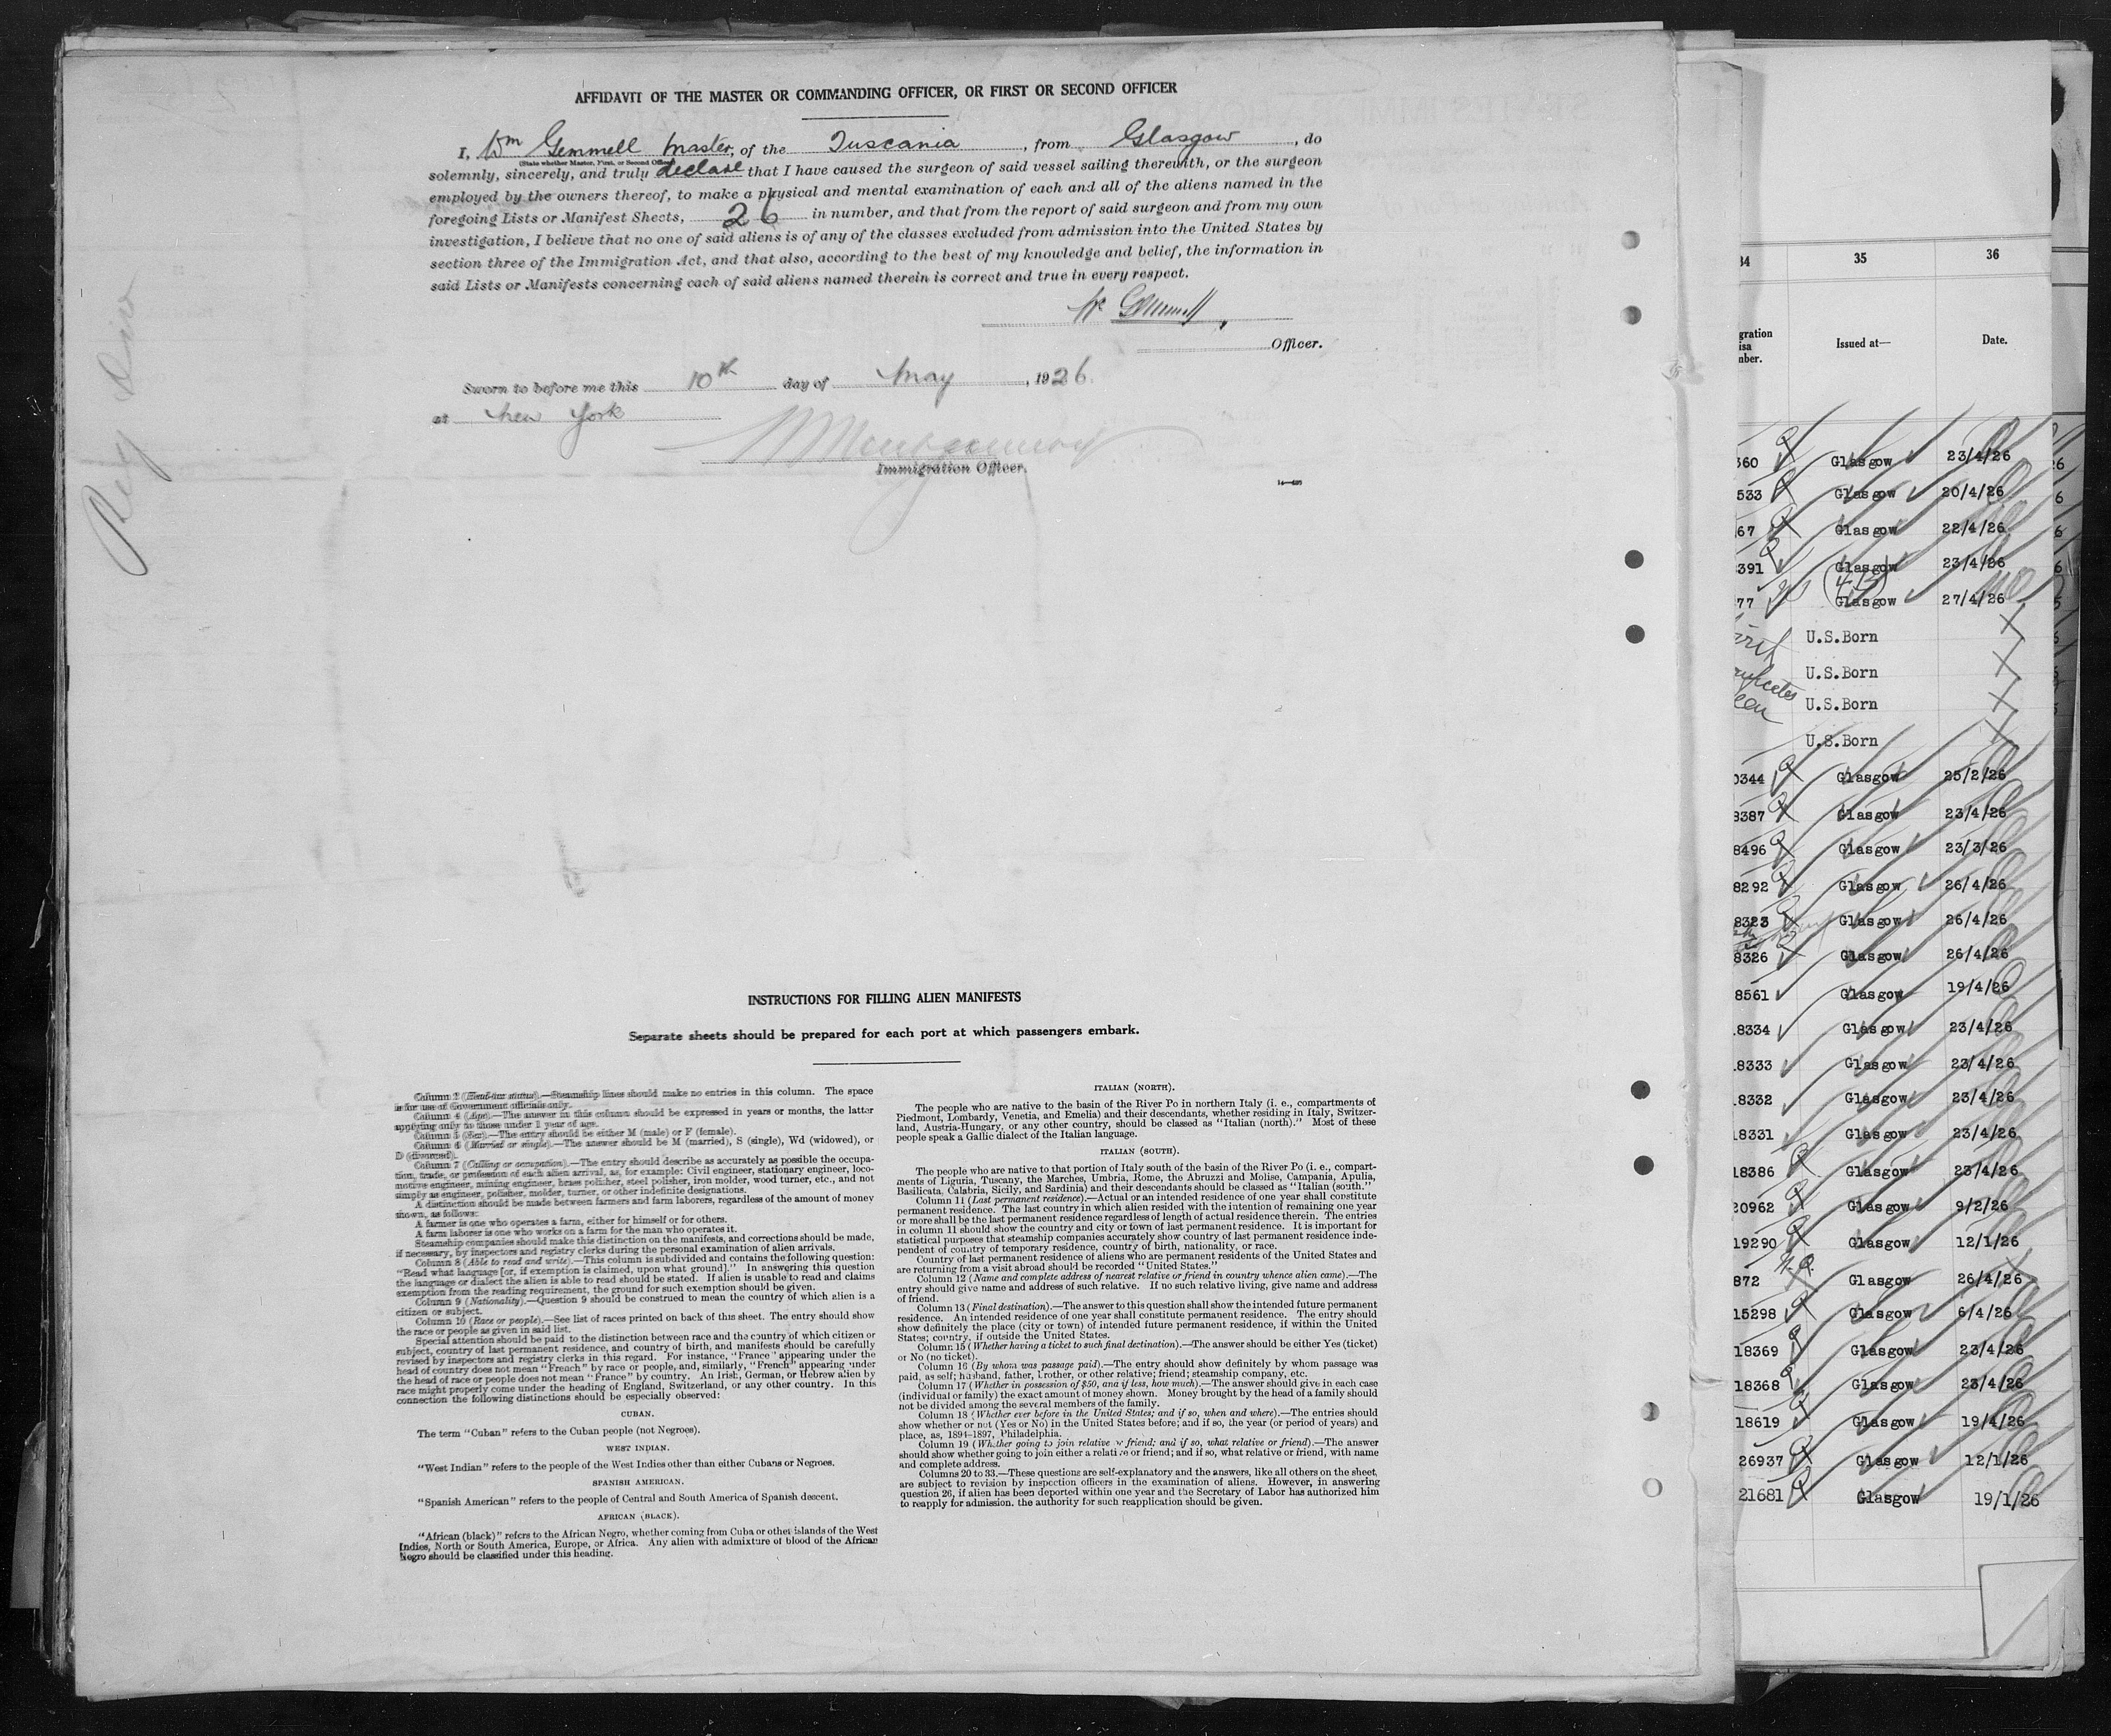 AFFIDAVIT OF THE MASTER OR COMMANDING OFFICER, OR FIRST OR SECOND OFFICER
I, Wm Gemmell Master, of the Tuscania, from Glasgow, do
(State whether Master, First, or Second Officer)
solemnly, sincerely, and truly declare that I have caused the surgeon of said vessel sailing therewith, or the surgeon
employed by the owners thereof, to make a physical and mental examination of each and all of the aliens named in the
foregoing Lists or Manifest Sheets, 26 in number, and that from the report of said surgeon and from my own
investigation, I believe that no one of said aliens is of any of the classes excluded from admission into the United States by
section three of the Immigration Act, and that also, according to the best of my knowledge and belief, the information in
said Lists or Manifests concerning each of said aliens named therein is correct and true in every respect.
Wm Gemmell
Officer.
Sworn to before me this 10th day of May, 1926.
at New York
Immigration Officer.
INSTRUCTIONS FOR FILLING ALIEN MANIFESTS
Separate sheets should be prepared for each port at which passengers embark.
Column 2 (Head-tax status).—Steamship lines should make no entries in this column. The space
is for use of Government officials only.
Column 4 (Age).—The answer in this column should be expressed in years or months, the latter
applying only to those under 1 year of age.
Column 5 (Sex).—The entry should be either M (male) or F (female).
Column 6 (Married or single).—The answer should be M (married), S (single), Wd (widowed), or
D (divorced).
Column 7 (Calling or occupation).—The entry should describe as accurately as possible the occupa-
tion, trade, or profession of each alien arrival, as, for example: Civil engineer, stationary engineer, loco-
motive engineer, mining engineer, brass polisher, steel polisher, iron molder, wood turner, etc., and not
simply as engineer, polisher, molder, turner, or other indefinite designations.
A distinction should be made between farmers and farm laborers, regardless of the amount of money
shown, as follows:
A farmer is one who operates a farm, either for himself or for others.
A farm laborer is one who works on a farm for the man who operates it.
Steamship companies should make this distinction on the manifests, and corrections should be made,
if necessary, by inspectors and registry clerks during the personal examination of alien arrivals.
Column 8 (Able to read and write).—This column is subdivided and contains the following question:
"Read what language [or, if exemption is claimed, upon what ground]." In answering this question
the language or dialect the alien is able to read should be stated. If alien is unable to read and claims
exemption from the reading requirement, the ground for such exemption should be given.
Column 9 (Nationality).—Question 9 should be construed to mean the country of which alien is a
citizen or subject.
Column 10 (Race or people).—See list of races printed on back of this sheet. The entry should show
the race or people as given in said list.
Special attention should be paid to the distinction between race and the country of which citizen or
subject, country of last permanent residence, and country of birth, and manifests should be carefully
revised by inspectors and registry clerks in this regard. For instance, "France" appearing under the
head of country does not mean "French" by race or people, and, similarly, "French" appearing under
the head of race or people does not mean "France" by country. An Irish, German, or Hebrew alien by
race might properly come under the heading of England, Switzerland, or any other country. In this
connection the following distinctions should be especially observed:
CUBAN.
The term "Cuban" refers to the Cuban people (not Negroes).
WEST INDIAN.
"West Indian" refers to the people of the West Indies other than either Cubans or Negroes.
SPANISH AMERICAN.
"Spanish American" refers to the people of Central and South America of Spanish descent.
AFRICAN (BLACK).
"African (black)" refers to the African Negro, whether coming from Cuba or other islands of the West
Indies, North or South America, Europe, or Africa. Any alien with admixture of blood of the African
Negro should be classified under this heading.
ITALIAN (NORTH).
The people who are native to the basin of the River Po in northern Italy (i. e., compartments of
Piedmont, Lombardy, Venetia, and Emelia) and their descendants, whether residing in Italy, Switzer-
land, Austria-Hungary, or any other country, should be classed as "Italian (north)." Most of these
people speak a Gallic dialect of the Italian language.
ITALIAN (SOUTH).
The people who are native to that portion of Italy south of the basin of the River Po (i. e., compart-
ments of Liguria, Tuscany, the Marches, Umbria, Rome, the Abruzzi and Molise, Campania, Apulia,
Basilicata, Calabria, Sicily, and Sardinia) and their descendants should be classed as "Italian (south."
Column 11 (Last permanent residence).—Actual or an intended residence of one year shall constitute
permanent residence. The last country in which alien resided with the intention of remaining one year
or more shall be the last permanent residence regardless of length of actual residence therein. The entries
in column 11 should show the country and city or town of last permanent residence. It is important for
statistical purposes that steamship companies accurately show country of last permanent residence inde-
pendent of country of temporary residence, country of birth, nationality, or race.
Country of last permanent residence of aliens who are permanent residents of the United States and
are returning from a visit abroad should be recorded "United States."
Column 12 (Name and complete address of nearest relative or friend in country whence alien came).—The
entry should give name and address of such relative. If no such relative living, give name and address
of friend.
Column 13 (Final destination).—The answer to this question shall show the intended future permanent
residence. An intended residence of one year shall constitute permanent residence. The entry should
show definitely the place (city or town) of intended future permanent residence, if within the United
States; country, if outside the United States.
Column 15 (Whether having a ticket to such final destination).—The answer should be either Yes (ticket)
or No (no ticket).
Column 16 (By whom was passage paid).—The entry should show definitely by whom passage was
paid, as self; husband, father, brother, or other relative; friend; steamship company, etc.
Column 17 (Whether in possession of $50, and if less, how much).—The answer should give in each case
(individual or family) the exact amount of money shown. Money brought by the head of a family should
not be divided among the several members of the family.
Column 18 (Whether ever before in the United States; and if so, when and where).—The entries should
show whether or not (Yes or No) in the United States before; and if so, the year (or period of years) and
place, as, 1894-1897, Philadelphia.
Column 19 (Whether going to join relative or friend; and if so, what relative or friend).—The answer
should show whether going to join either a relative or friend; and if so, what relative or friend, with name
and complete address.
Columns 20 to 33.—These questions are self-explanatory and the answers, like all others on the sheet,
are subject to revision by inspection officers in the examination of aliens. However, in answering
question 26, if alien has been deported within one year and the Secretary of Labor has authorized him
to reapply for admission, the authority for such reapplication should be given.
34 35 36
gration
isa
nber. Issued at— Date.
360 Glasgow 23/4/26
533 Glasgow 20/4/26
67 Glasgow 22/4/26
391 Glasgow 23/4/26
77 Glasgow 27/4/26
U.S.Born
U.S.Born
U.S.Born
U.S.Born
0344 Glasgow 25/2/26
8387 Glasgow 23/4/26
8496 Glasgow 23/3/26
8292 Glasgow 26/4/26
8323 Glasgow 26/4/26
8326 Glasgow 26/4/26
8561 Glasgow 19/4/26
8334 Glasgow 23/4/26
8333 Glasgow 23/4/26
8332 Glasgow 23/4/26
8331 Glasgow 23/4/26
18386 Glasgow 23/4/26
20962 Glasgow 9/2/26
19290 Glasgow 12/1/26
872 Glasgow 26/4/26
15298 Glasgow 6/4/26
18369 Glasgow 23/4/26
18368 Glasgow 23/4/26
18619 Glasgow 19/4/26
26937 Glasgow 12/1/26
21681 Glasgow 19/1/26